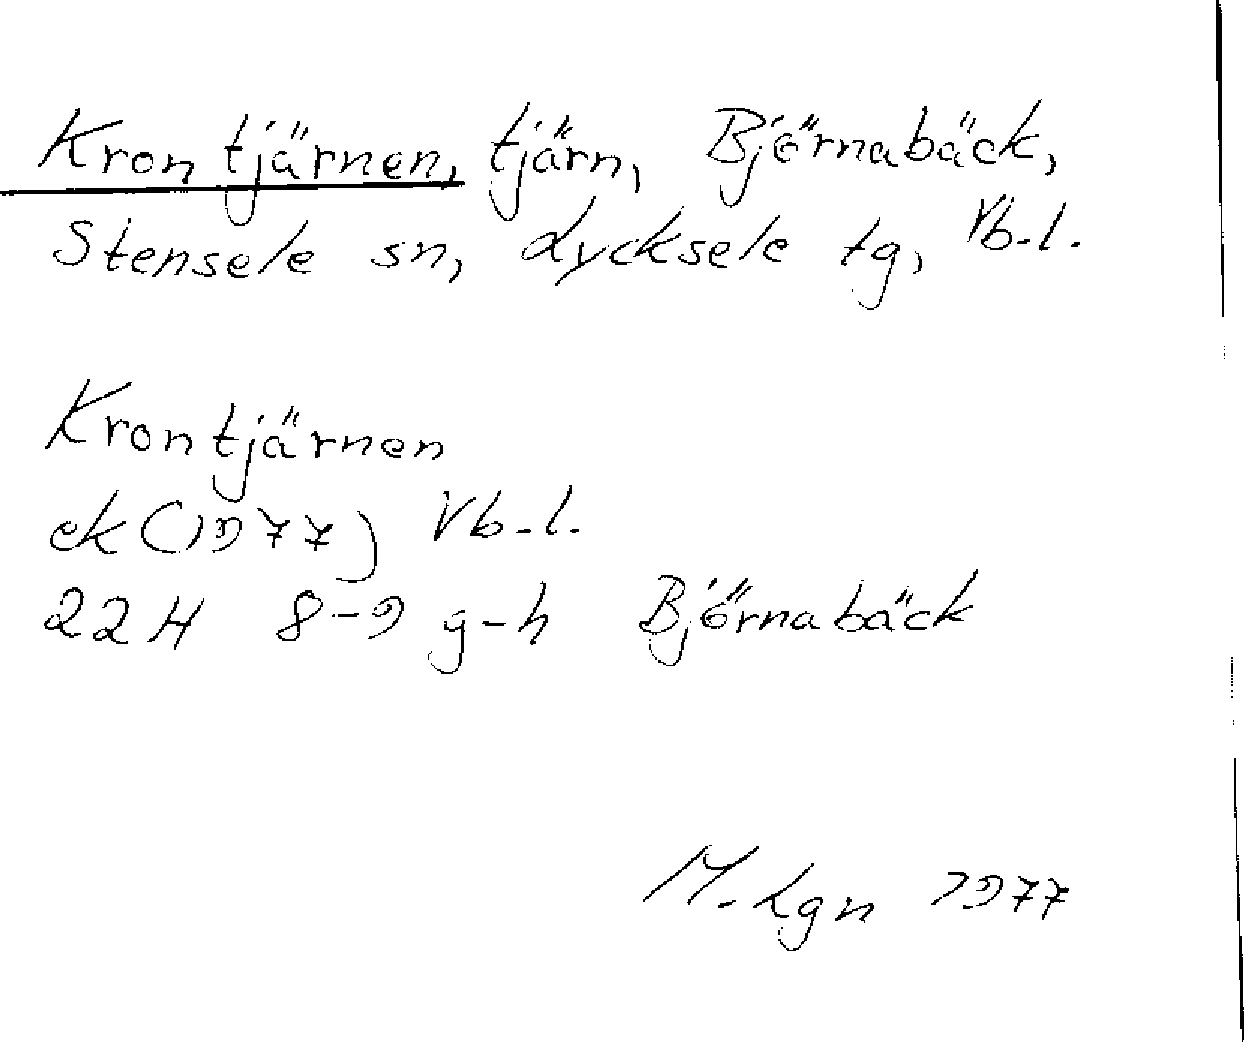 Krontjärnen, tjärn, Björnabäck,
Stensele sn, Lycksele tg, Vb-l.
Krontjärnen
ek (1977) Vb-l.
22H 8-9 g-h Björnabäck
M-Lgn 1977